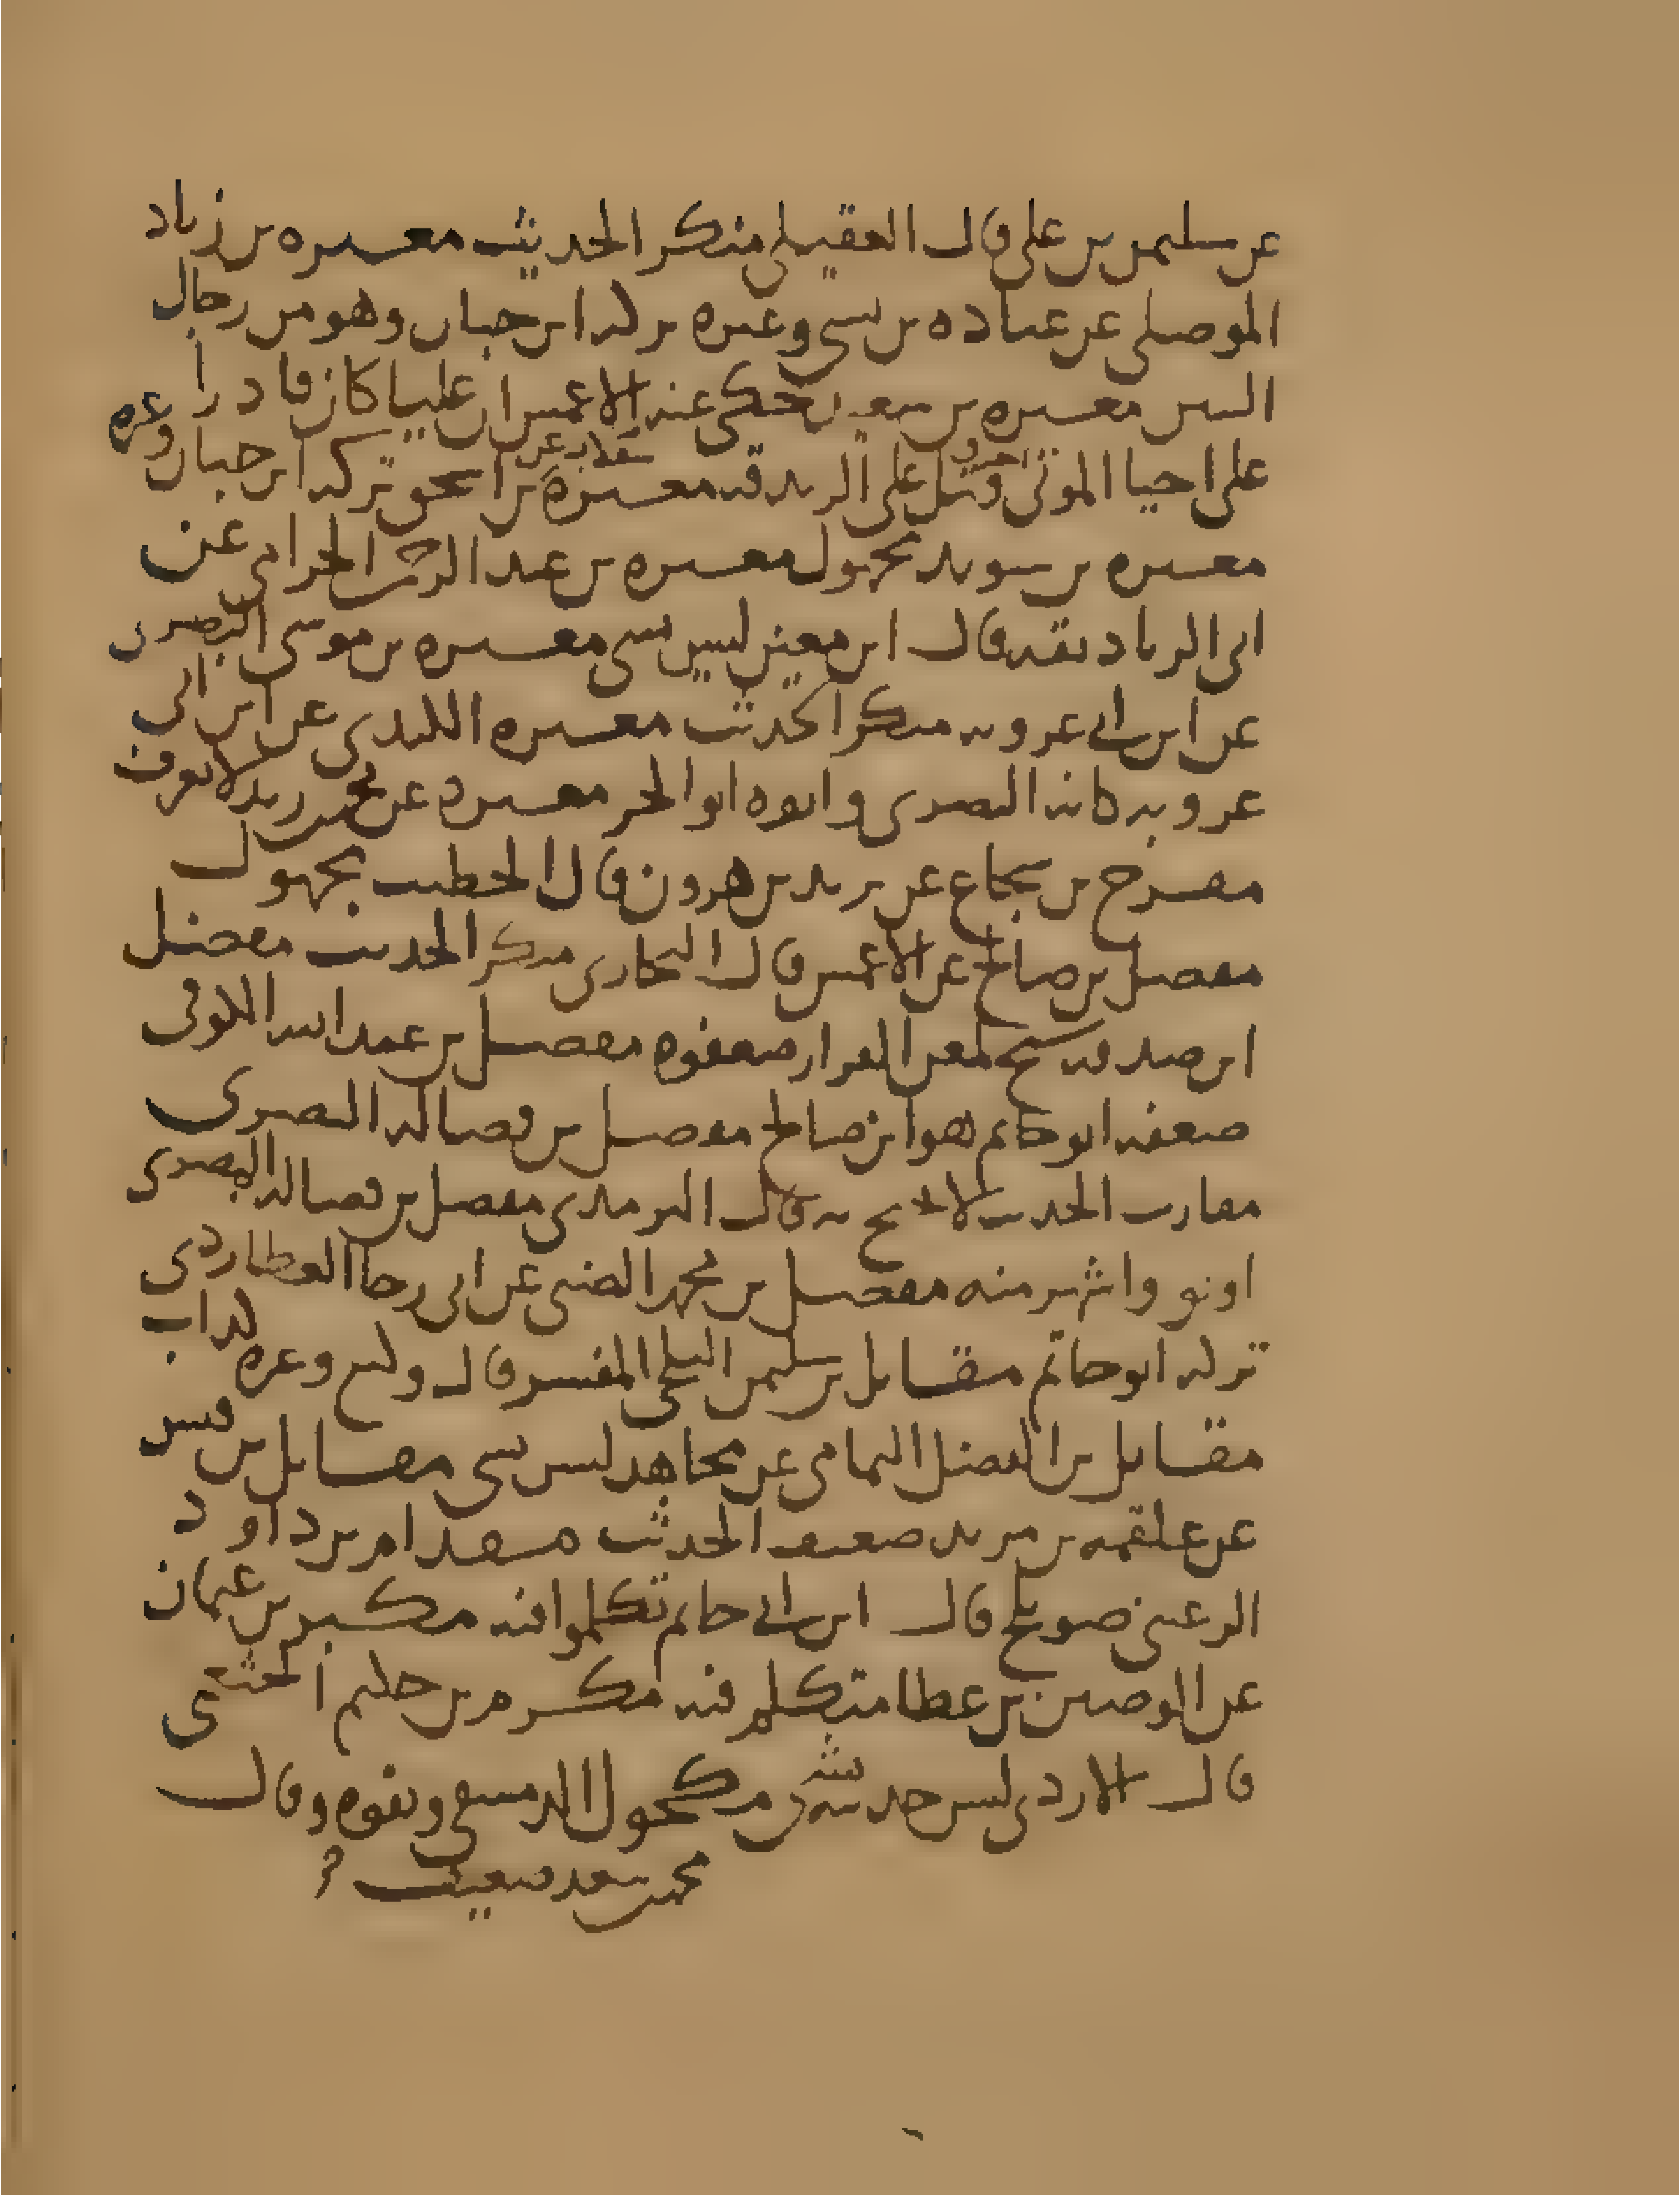 عن سليمن بن علي قال العقيلي منكر الحديث مغيره بن زياد
الموصلي عن عباده بن نسي وغيره تركه ابن حبان وهو من رجال
السنن مغيره بن سعيد حكى عنه الاعمش ان عليا كان قادرا
على احيا الموتى وقتل على الزندقه مغيره بن تركه ابن حبان وغيره
مغيره بن سويد مجهول مغيره بن عبد الرحمن الحزامي عن
ابي الزناد ثقه قال ابن معين ليس بشي مغيره بن موسى البصري
عن ابن ابي عروبه منكر الحديث مغيره الكندي عن ابن ابي
عروبه كانه البصري وابوه ابو الحر مغيره عن محمد بن زيد لا يعرف
مفرح بن شجاع عن يزيد بن هرون قال الخطيب مجهول
مفضل بن صالح عن الاعمش قال البخاري منكر الحديث مفضل
ابن صدقه شيخ لمعن القزاز ضعفوه مفضل بن عبد الله الكوفي
ضعفه ابو حاتم هو ابن صالح مفضل بن فضاله البصري
مقارب الحديث لا يحتج به قال الترمذي مفضل بن فضاله المصري
اوثق واشهر منه مفضل بن محمد الضبي عن ابي رجا العطاردي
تركه ابو حاتم مقاتل بن سليمن البلخي المفسر قال وكيع وغيره كذاب
مقاتل بن الفضل اليمامي عن مجاهد ليس بشي مقاتل بن قيس
عن علقمه بن مرثد ضعيف الحديث مقدام بن داود
الرعيني صويلح قال ابن ابي حاتم تكلموا فيه مكبر بن عثمان
عن الوضين بن عطا متكلم فيه مكرم بن حكيم الخثعمي
قال الازدي ليس حديثه بشي مكحول الدمشقي وثقوه وقال
محمد بن سعد ضعيف